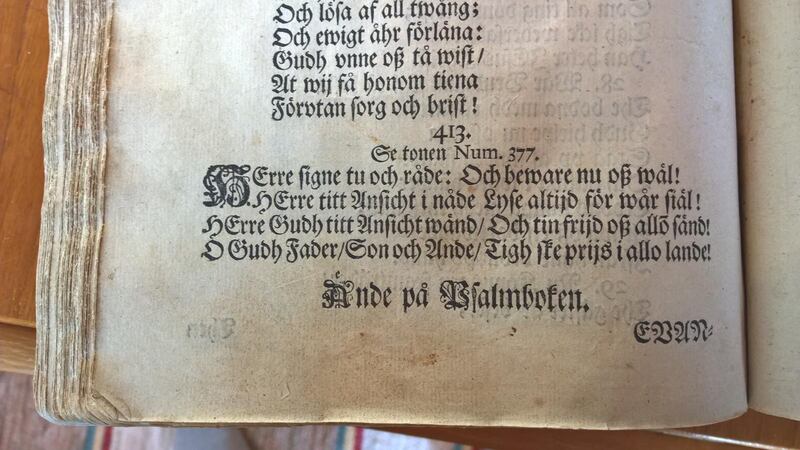 Och lösa af all twång;
Och ewigt åhr förläna:
Gudh vnne oß tå wist/
At wij få honom tiena
Förvtan sorg och brist!
413.
Se tonen Num. 377.
HErre signe tu och råde: Och beware nu oß wäl!
HErre titt Ansicht i nåde Lyse altijd för wår siäl!
HErre Gudh titt Ansicht wänd/ Och tin frijd oß allō sänd!
O Gudh Fader/Son och Ande/Tigh ske prijs i allo lande!
Ände på Psalmboken.
EVAN-